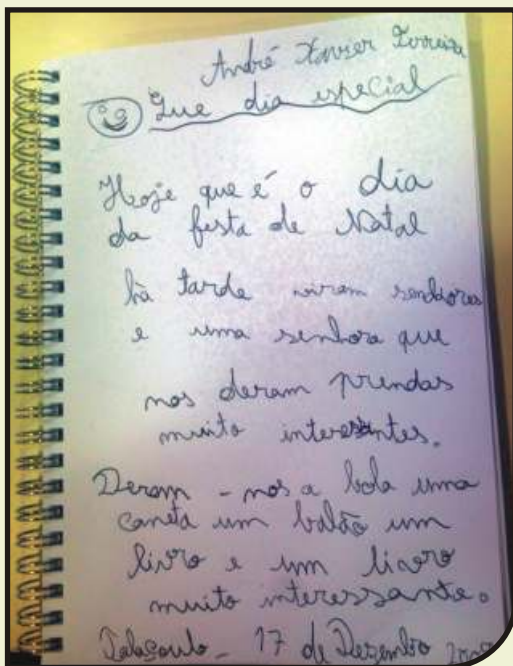 André Xavier Ferreira
Que dia especial
Hoje que é o dia
da festa de Natal
há tarde viram senhores
e uma senhora que
nos deram prendas
muito interesantes.
Deram-nos a bola uma
caneta um balão um
livro e um livro
muito interessante.
17 de Dezembro